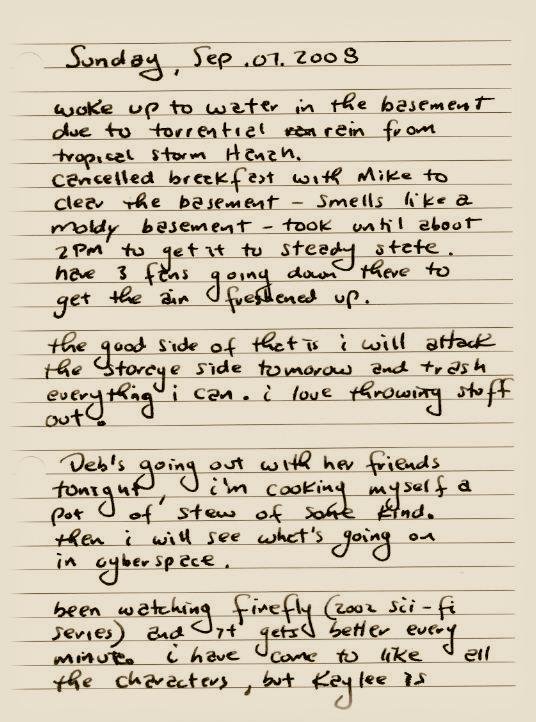 Sunday, Sep.07.2008
woke up to water in the basement
due to torrential rain from
tropical storm Hanah.
cancelled breakfast with Mike to
clear the basement - smells like a
moldy basement - took until about
2PM to get it to steady state.
have 3 fans going down there to
get the air freshened up.
the good side of that is i will attack
the storage side tomorow and trash
everything i can. i love throwing stuff
out.
Deb's going out with her friends
tonight, i'm cooking myself a
pot of stew of some kind.
then i will see what's going on
in cyberspace.
been watching firefly (2002 sci-fi
series) and it gets better every
minute. i have come to like all
the characters, but Kaylee is